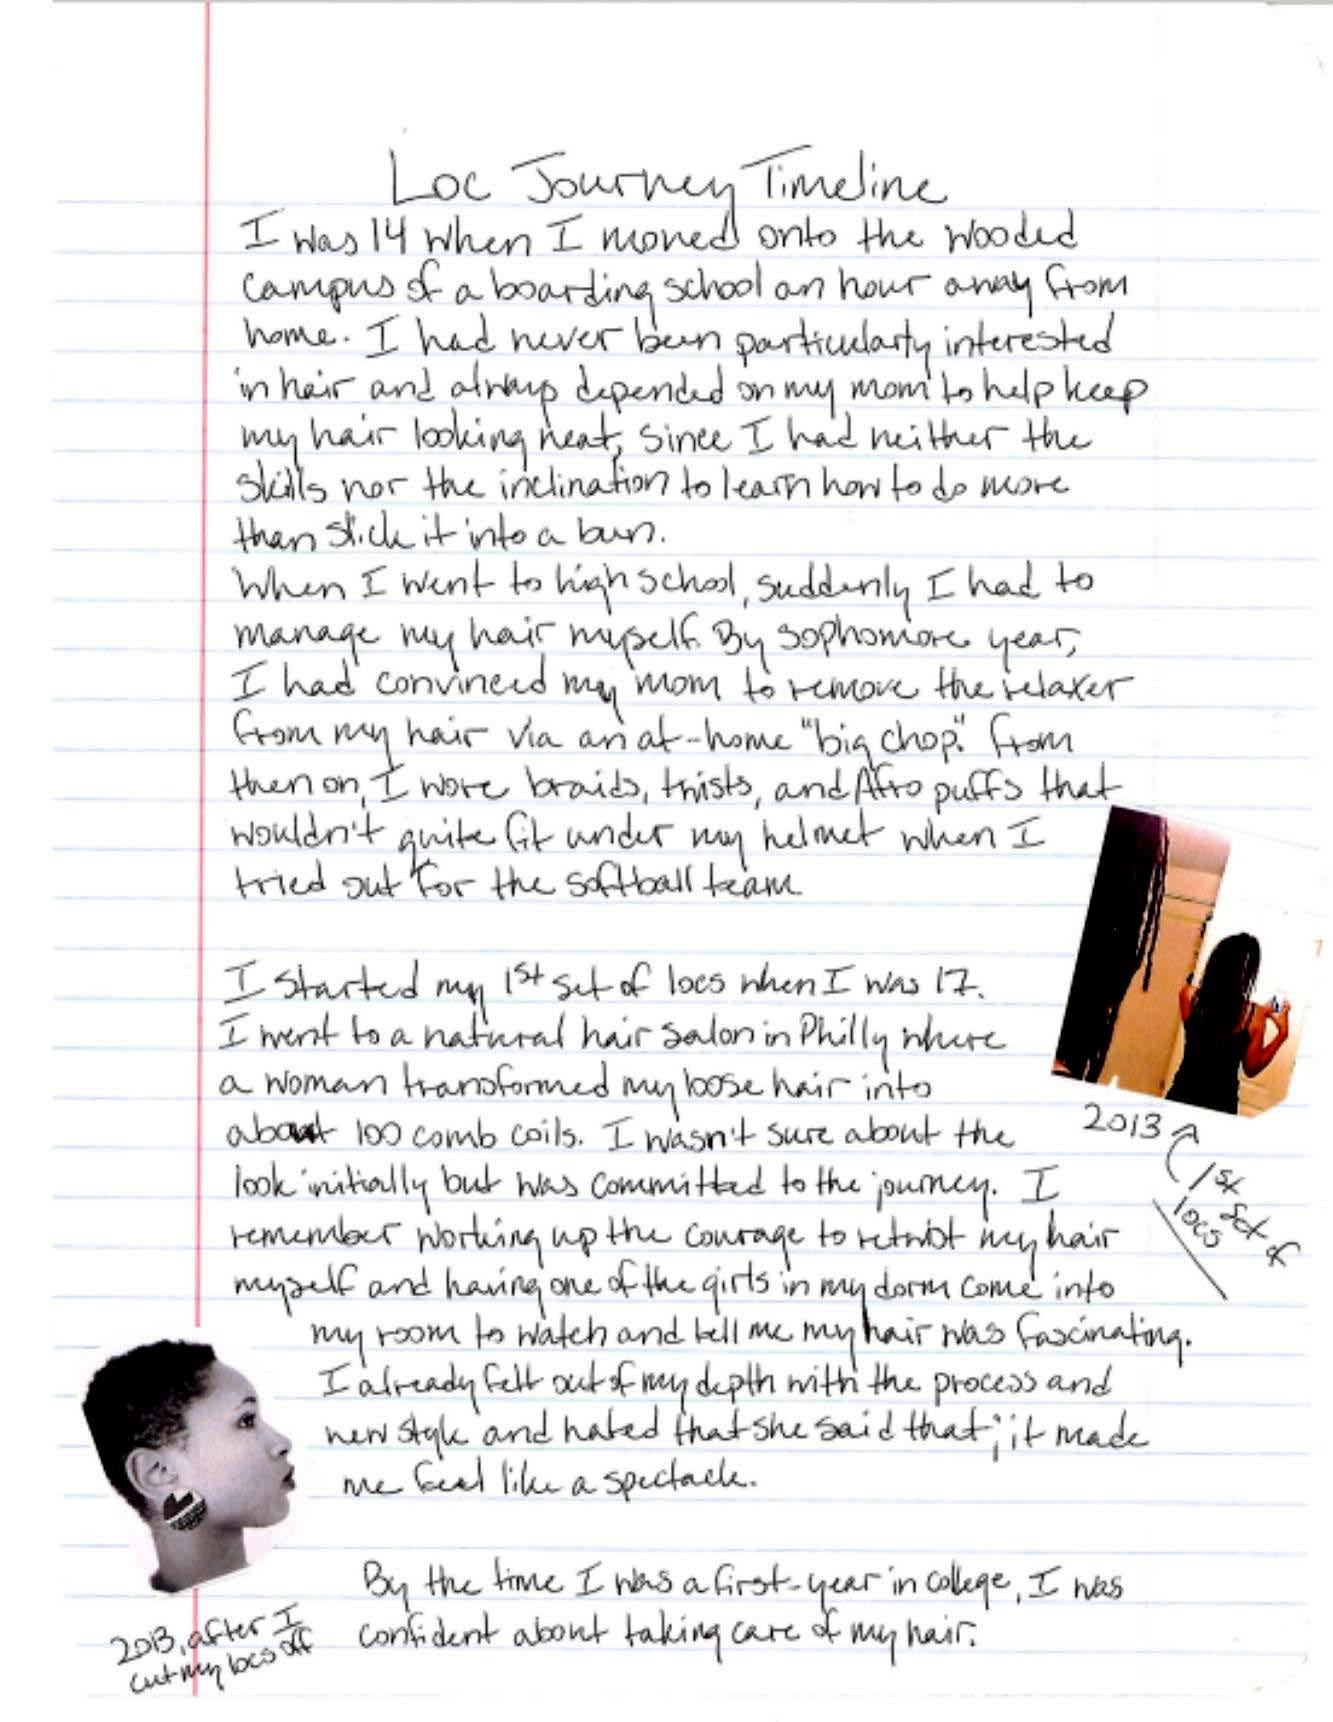 Loc Journey Timeline
I was 14 when I moved onto the wooded
campus of a boarding school an hour away from
home. I had never been particularly interested
in hair and always depended on my mom to help keep
my hair looking neat, since I had neither the
skills nor the inclination to learn how to do more
than slick it into a bun.
When I went to high school, suddenly I had to
manage my hair myself. By sophomore year,
I had convinced my mom to remove the relaxer
from my hair via an at-home "big chop." From
then on, I wore braids, twists, and Afro puffs that
wouldn't quite fit under my helmet when I
tried out for the softball team.
I started my 1st set of locs when I was 17.
I went to a natural hair salon in Philly where
a woman transformed my loose hair into
about 100 comb coils. I wasn't sure about the
look initially but was committed to the journey. I
remember working up the courage to retwist my hair
myself and having one of the girls in my dorm come into
my room to watch and tell me my hair was fascinating.
I already felt out of my depth with the process and
new style and hated that she said that; it made
me feel like a spectacle.
2013
1st
set of
locs
By the time I was a first-year in college, I was
confident about taking care of my hair.
2013, after I
cut my locs off